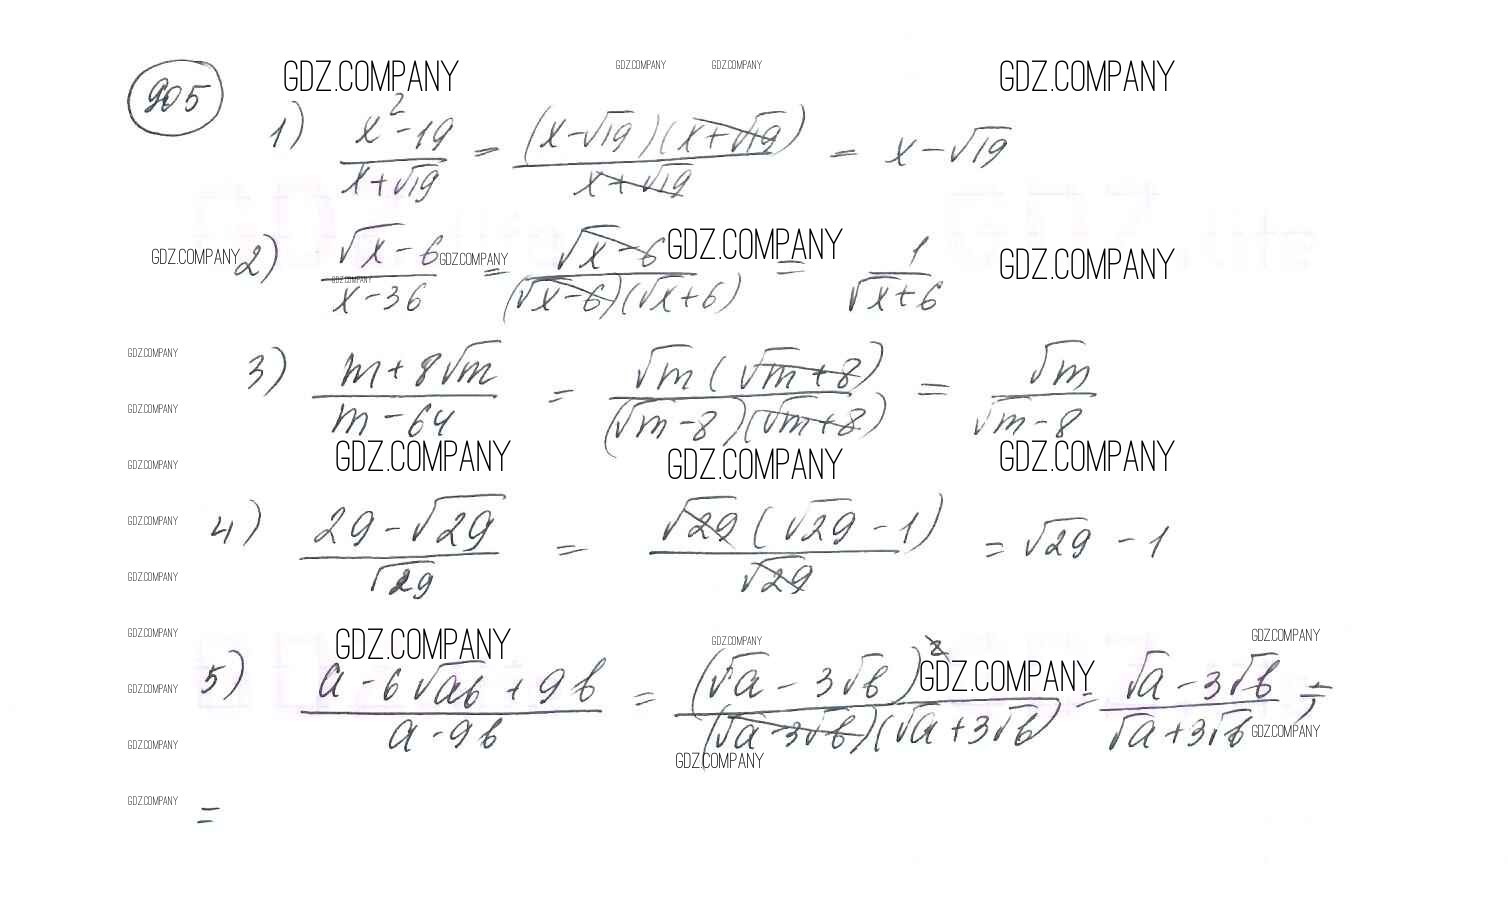 GDZ.COMPANY GDZ.COMPANY GDZ.COMPANY GDZ.COMPANY
905
1) (x² - 19)/(x + √19) = ((x - √19)(x + √19))/(x + √19) = x - √19
GDZ.COMPANY GDZ.COMPANY GDZ.COMPANY GDZ.COMPANY GDZ.COMPANY
2) (√x - 6)/(x - 36) = (√x - 6)/((√x - 6)(√x + 6)) = 1/(√x + 6)
GDZ.COMPANY
3) (m + 8√m)/(m - 64) = (√m(√m + 8))/((√m - 8)(√m + 8)) = √m/(√m - 8)
GDZ.COMPANY
GDZ.COMPANY GDZ.COMPANY GDZ.COMPANY GDZ.COMPANY
GDZ.COMPANY
4) (29 - √29)/√29 = (√29(√29 - 1))/√29 = √29 - 1
GDZ.COMPANY
GDZ.COMPANY GDZ.COMPANY GDZ.COMPANY GDZ.COMPANY
5) (a - 6√ab + 9b)/(a - 9b) = (√a - 3√b)²/((√a - 3√b)(√a + 3√b)) = (√a - 3√b)/(√a + 3√b) ;
GDZ.COMPANY GDZ.COMPANY GDZ.COMPANY
GDZ.COMPANY GDZ.COMPANY
GDZ.COMPANY
=